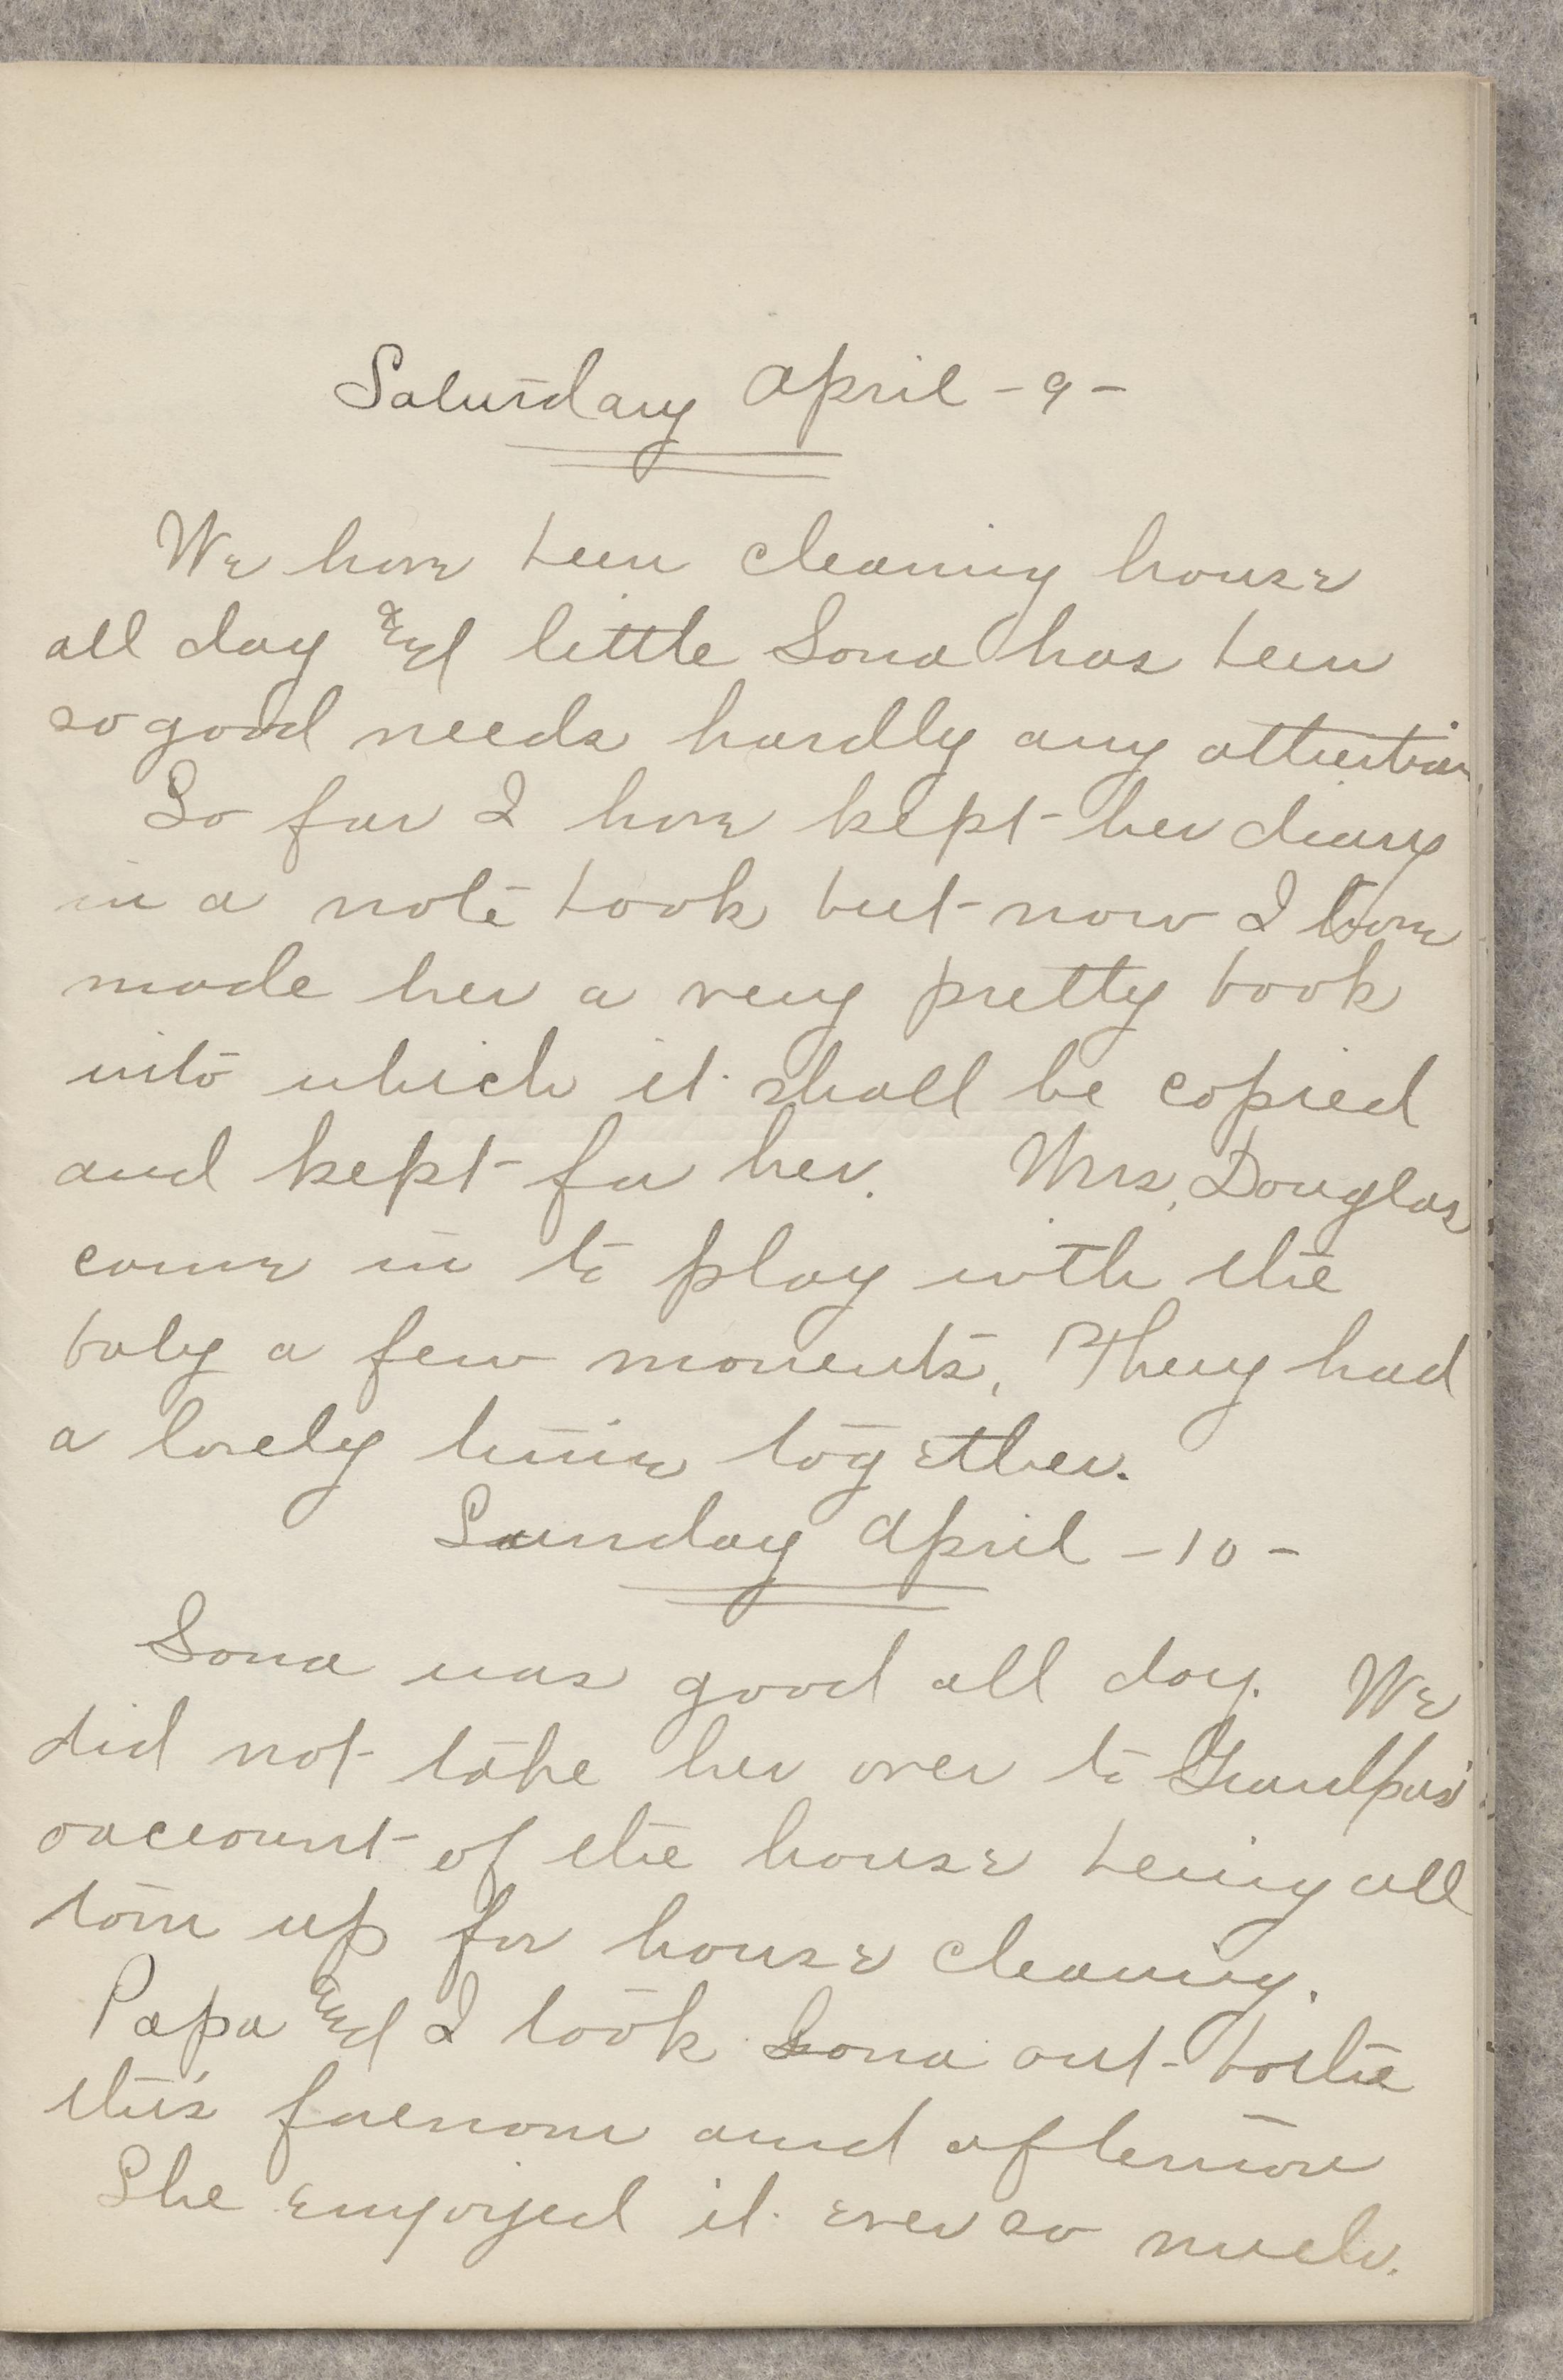 Saturday April - 9 -
We have been cleaning house
all day and little Sona has been
so good needs hardly any attention
So far I have kept her diary
in a note book but now I have
made her a very pretty book
into which it shall be copied
and kept for her. Mrs. Douglas
came in to play with the
baby a few moments. They had
a lovely time together.
Sunday April - 10 -
Sona was good all day. We
did not take her over to Grandpas'
oaccount of the house being all
torn up for house cleaning.
Papa and I took Sona out both
this forenoon and afternoon
She enjoyed it ever so much.